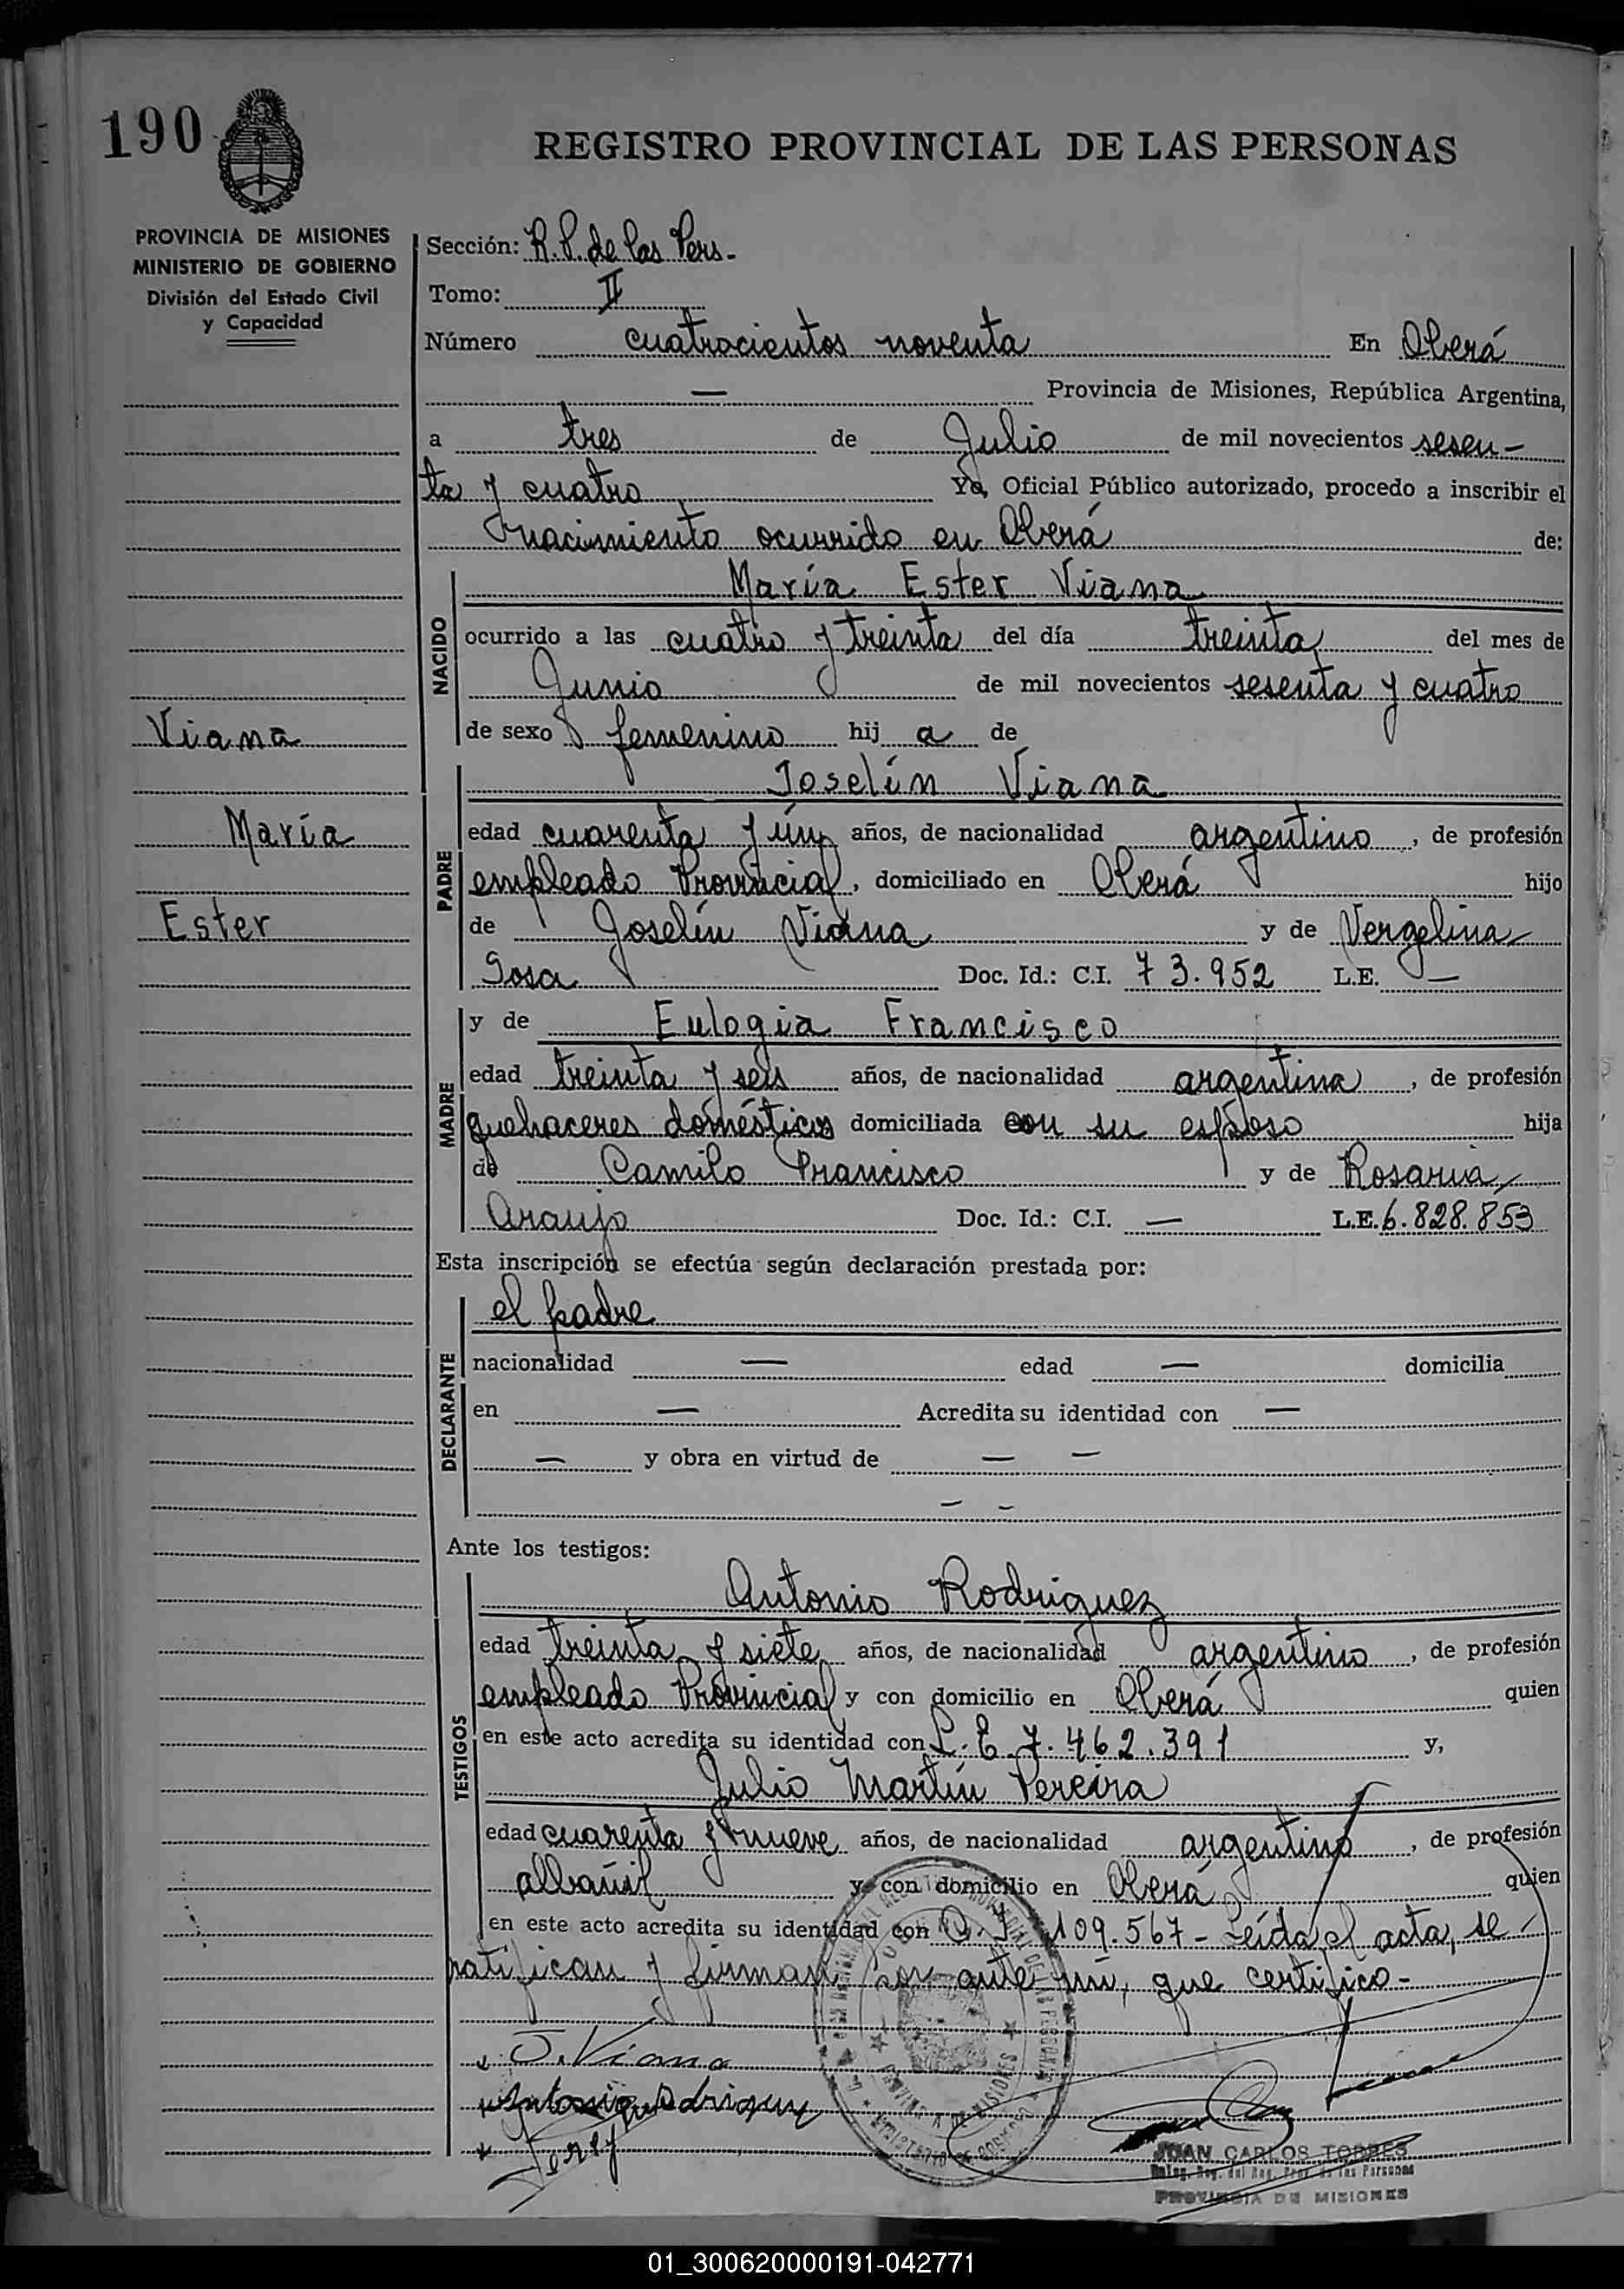 190
REGISTRO PROVINCIAL DE LAS PERSONAS
PROVINCIA DE MISIONES
MINISTERIO DE GOBIERNO
División del Estado Civil
y Capacidad
Viana
María
Ester
Sección: R.P. de las Pers.-
Tomo: II
Número cuatrocientos noventa En Oberá
— Provincia de Misiones, República Argentina,
a tres de Julio de mil novecientos sesen-
ta y cuatro Yo, Oficial Público autorizado, procedo a inscribir el
nacimiento ocurrido en Oberá de:
NACIDO
María Ester Viana
ocurrido a las cuatro y treinta del día treinta del mes de
Junio de mil novecientos sesenta y cuatro
de sexo femenino hij a de
PADRE
Joselín Viana
edad cuarenta y un años, de nacionalidad argentino, de profesión
empleado Provincial, domiciliado en Oberá hijo
de Joselín Viana y de Vergelina
Sosa Doc. Id.: C.I. 73.952 L.E. —
MADRE
y de Eulogia Francisco
edad treinta y seis años, de nacionalidad argentina, de profesión
quehaceres domésticos domiciliada con su esposo hija
de Camilo Francisco y de Rosaria
Araujo Doc. Id.: C.I. — L.E. 6.828.853
Esta inscripción se efectúa según declaración prestada por:
DECLARANTE
el padre
nacionalidad — edad — domicilia
en — Acredita su identidad con —
— y obra en virtud de — —
— —
Ante los testigos:
TESTIGOS
Antonio Rodriguez
edad treinta y siete años, de nacionalidad argentino, de profesión
empleado Provincial y con domicilio en Oberá quien
en este acto acredita su identidad con L.E. 7.462.391 y,
Julio Martín Pereira
edad cuarenta y nueve años, de nacionalidad argentino, de profesión
albañil y con domicilio en Oberá quien
en este acto acredita su identidad con C.I. 109.567- Leída el acta, se
ratifican y firman por ante mí, que certifico-
J. Viana
Antonio Rodriguez
JUAN CARLOS TORRES
PROVINCIA DE MISIONES
01_300620000191-042771